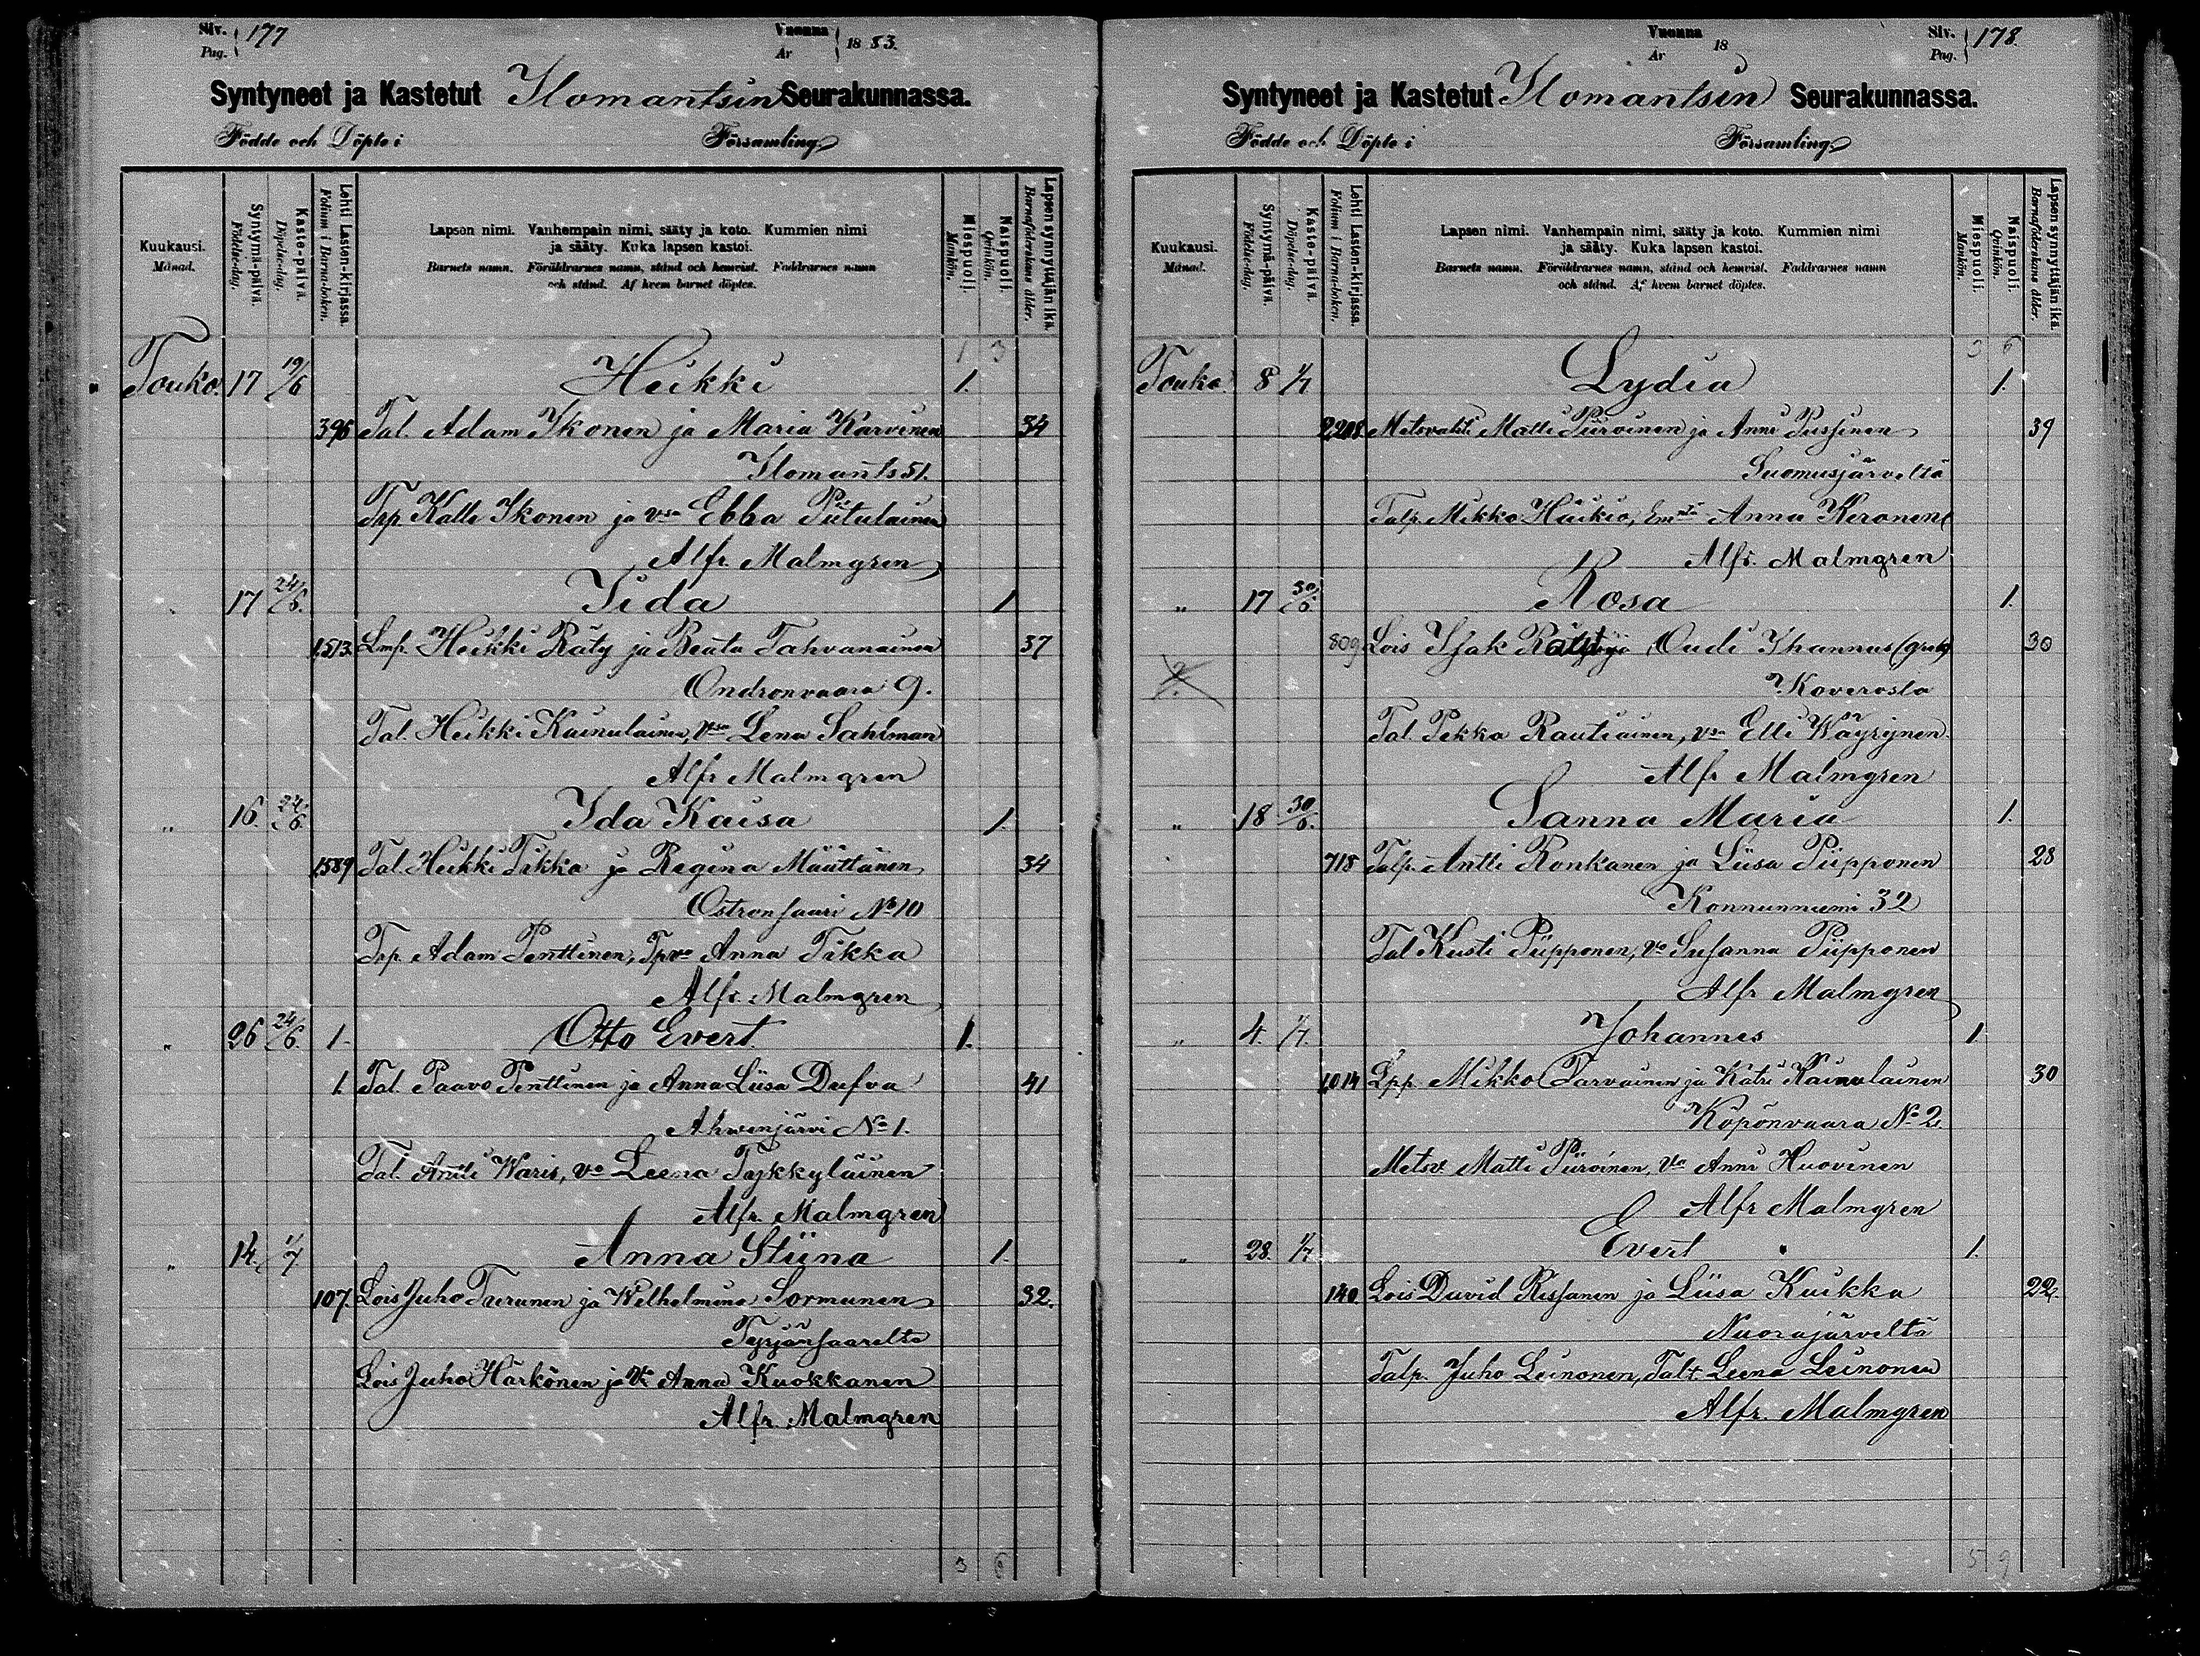 Siv. Pag. 177
Vuonna År 1883.
Syntyneet ja Kastetut Ilomantsin Seurakunnassa.
Födde och Döpte i Församling
Kuukausi. Månad.
Syntymä-päivä. Födelse-dag.
Kaste-päivä. Döpelse-dag.
Lehti Lasten-kirjassa. Folium i Barna-boken.
Lapsen nimi. Vanhempain nimi, sääty ja koto. Kummien nimi
ja sääty. Kuka lapsen kastoi.
Barnets namn. Föräldrarnes namn, stånd och hemvist. Faddrarnes namn
och stånd. Af hvem barnet döptes.
Miespuoli. Mankön.
Naispuoli. Qvinkön.
Lapsen synnyttäjän ikä. Barnaföderskans ålder.
1 3
Touko. 17 19/6 Heikki 1.
396 Tal. Adam Ikonen ja Maria Karvinen 34
Ilomants 51.
Trp. Kalle Ikonen ja vsa Ebba Piitulainen
Alfr. Malmgren
17 24/6. Iida 1
1513. Lmp. Heikki Räty ja Beata Tahvanainen 37
Ondronvaara 9.
Tal. Heikki Kainulainen, Vsa Lena Sahlman
Alfr Malmgren
„ 16. 24/6. Ida Kaisa 1.
1589 Tal. Heikki Tikka ja Regina Määttänen 34
Ostronsaari No 10
Trp. Adam Penttinen, Tpva Anna Tikka
Alfr. Malmgren
„ 26 24/6. 1. Otto Evert. 1.
1. Tal. Paavo Penttinen ja Anna Liisa Dufva 41
Ahwenjärvi No 1.
Tal. Antti Waris, va Leena Tykkyläinen
Alfr. Malmgren
„ 14. 1/7 Anna Stiina 1.
107. Lois Juho Turunen ja Wilhelmina Sormunen 32.
Tyrjänsaarelta
Lois Juho Härkönen ja Va Anna Kuokkanen
Alfr. Malmgren
3 6
Siv. Pag. 178.
Vuonna År 18
Syntyneet ja Kastetut Ilomantsin Seurakunnassa.
Födde och Döpte i Församling.
Kuukausi. Månad.
Syntymä-päivä. Födelse-dag.
Kaste-päivä. Döpelse-dag.
Lehti Lasten-kirjassa. Folium i Barna-boken.
Lapsen nimi. Vanhempain nimi, sääty ja koto. Kummien nimi
ja sääty. Kuka lapsen kastoi.
Barnets namn. Föräldrarnes namn, stånd och hemvist. Faddrarnes namn
och stånd. Af hvem barnet döptes.
Miespuoli. Mankön.
Naispuoli. Qvinkön.
Lapsen synnyttäjän ikä. Barnaföderskans ålder.
3 6
Touko 8 1/7 Lydia 1.
2208 Metsvahti Matti Piiroinen ja Anni Pussinen 39
Suomusjärveltä
Talp. Mikko Häikiö, Emtä Anna Keronen
Alfr. Malmgren
„ 17 30/6. Rosa 1.
809 Lois Isak Oudi Ihannus (grek) 30
Koverosta
Tal. Pekka Rautiainen, va Elli Wäyrynen.
Alfr Malmgren
„ 18 30/6. Sanna Maria 1.
718 Talp. Antti Ronkanen ja Liisa Piipponen 28
Konnunniemi 32
Tal Kusti Piipponen, va Susanna Piipponen
Alfr Malmgren
„ 4. 1/7. Johannes 1
1014 Lpp. Mikko Tarvainen ja Katri Kainulainen 30
Köpönvaara No 2.
Metsv Matti Piiroinen, Va Anni Huovinen
Alfr Malmgren
„ 28. 1/7 Evert 1.
140. Lois David Rissanen ja Liisa Kuikka 22.
Nuorajärveltä
Talp. Juho Leinonen, Talt Leena Leinonen
Alfr. Malmgren
5 9